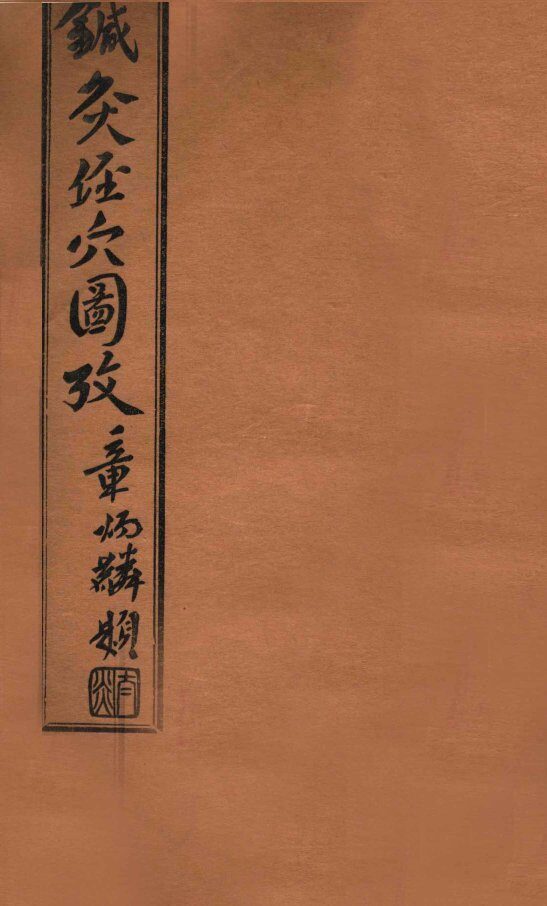 鍼灸經穴圖攷
章炳麟題
太炎